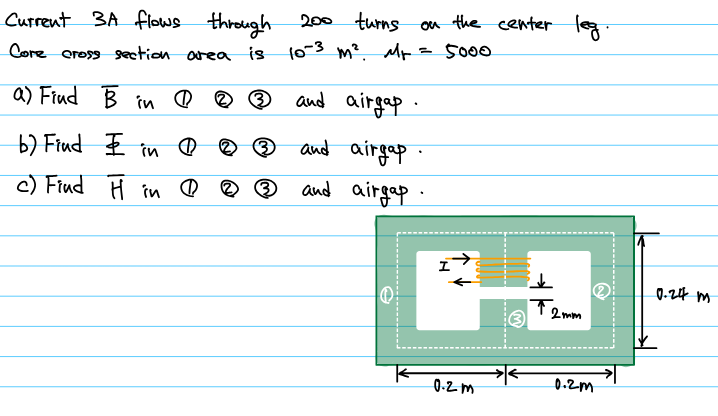 Current 3A flows through 200 turns on the center leg.
Core cross section area is 10⁻³ m². Mr = 5000
a) Find B̅ in ① ② ③ and airgap.
b) Find Φ̅ in ① ② ③ and airgap.
c) Find H̅ in ① ② ③ and airgap.
I
①
②
0.24 m
③
2mm
0.2 m
0.2m